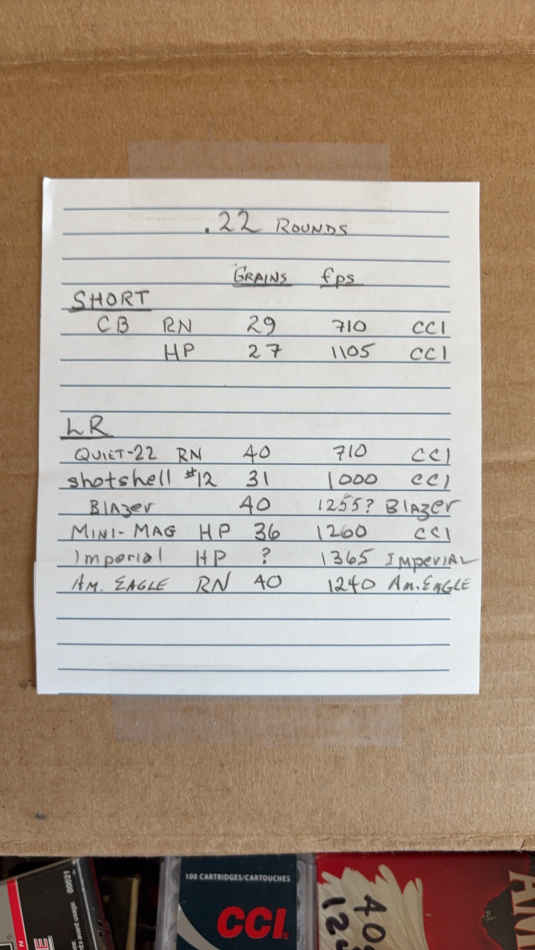 .22 ROUNDS
GRAINS fps
SHORT
CB RN 29 710 CCI
HP 27 1105 CCI
LR
QUIET-22 RN 40 710 CCI
shotshell #12 31 1000 CCI
Blazer 40 1255? Blazer
MINI-MAG HP 36 1260 CCI
Imperial HP ? 1365 IMPERIAL
AM. EAGLE RN 40 1240 AM. EAGLE
100 CARTRIDGES/CARTOUCHES
CCI
40
12
AM